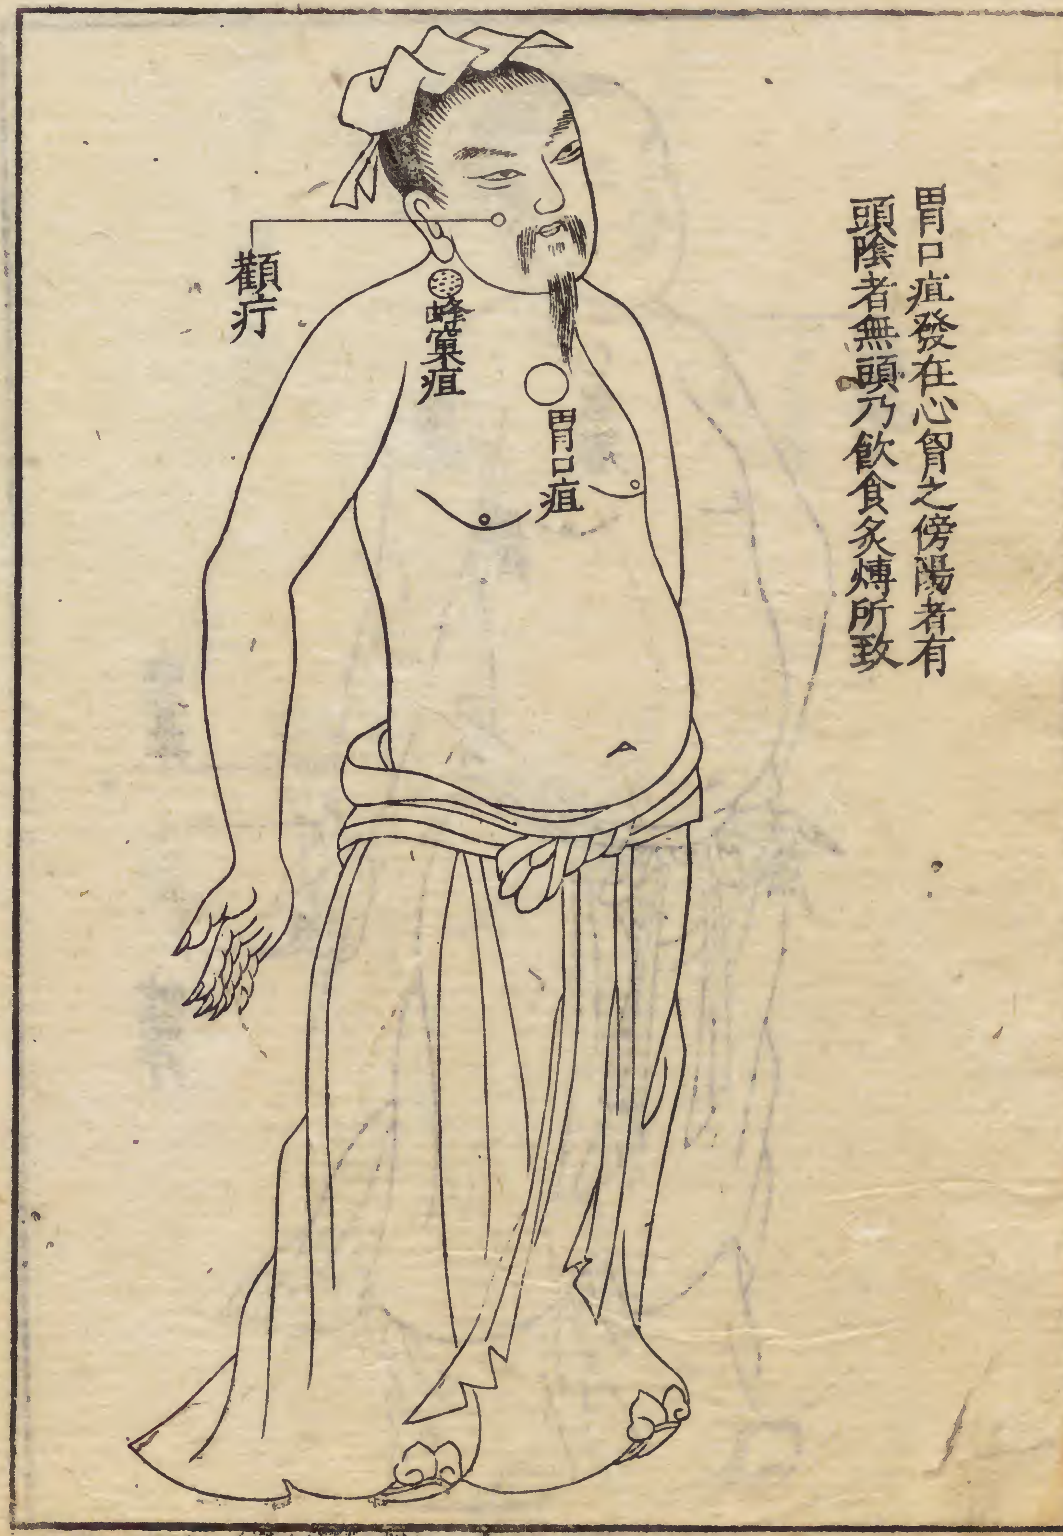 胃口疽發在心胷之傍陽者有
頭陰者無頭乃飲食炙煿所致
胃口疽
蜂窠疽
顴疔